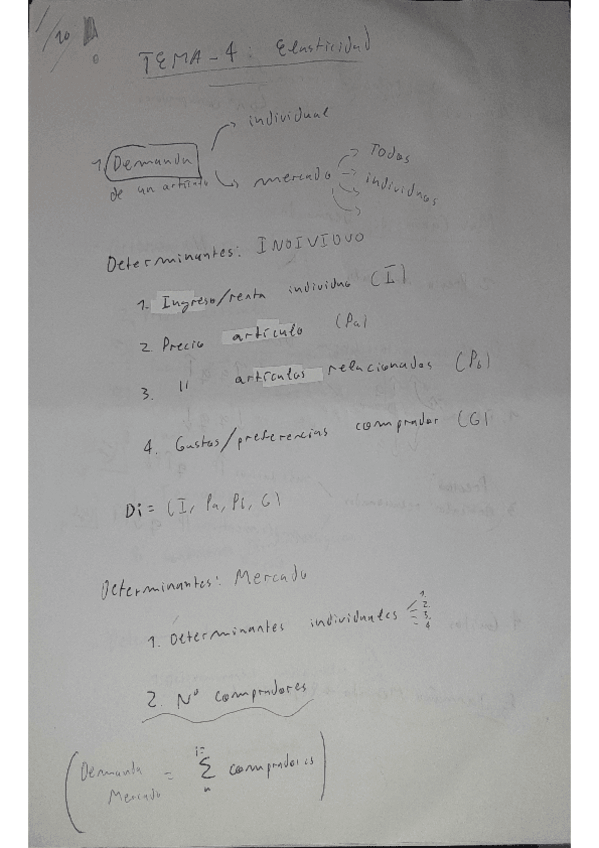 1/20
TEMA-4: Elasticidad
individual
1. Demanda
de un artículo
mercado
Todos
individuos
Determinantes: INDIVIDUO
1. Ingreso/renta individuo (I)
2. Precio artículo (Pa)
3. " artículos relacionados (Pb)
4. Gustos/preferencias comprador (G)
Di = (I, Pa, Pb, G)
Determinantes: Mercado
1. Determinantes individuales 1. 2. 3. 4
2. Nº compradores
(Demanda Mercado = i= Σ n compradores)